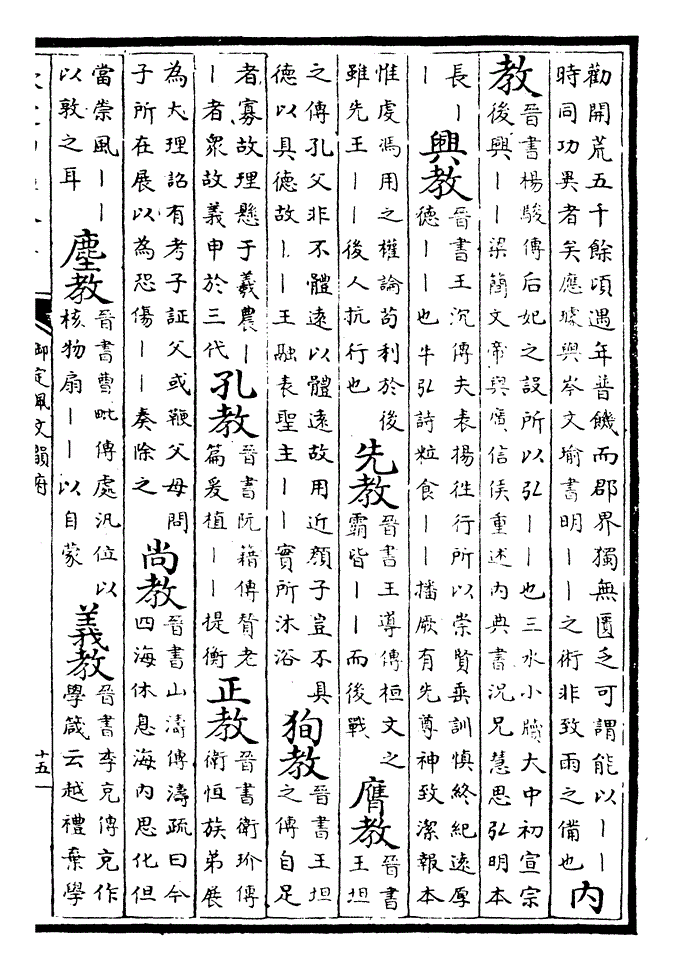 勸開荒五千餘頃遇年普饑而郡界獨無匱乏可謂能以丨丨
時同功異者矣應璩與岑文瑜書明丨丨之術非致雨之備也
内
教
晉書楊駿傳后妃之設所以弘丨丨也三水小牘大中初宣宗
後興丨丨梁簡文帝與廣信侯重述内典書況兄慧思弘明本
長丨
丨
興教
晉書王沉傳夫表揚徃行所以崇賢垂訓慎終紀遠厚
德丨丨也牛弘詩粒食丨丨播厥有先尊神致潔報本
惟虔馮用之權論苟利於後
雖先王丨丨後人抗行也
先教
晉書王導傳桓文之
霸皆丨丨而後戰
膺教
晉書
王坦
之傳孔父非不體遠以體遠故用近顔子豈不具
德以具德故丨丨王融表聖主丨丨實所沐浴
狥教
晉書王坦
之傳自足
者寡故理懸于羲農丨
丨者衆故義申於三代
孔教
晉書阮籍傳贊老
篇爰植丨丨提衡
正教
晉書衛玠傳
衛恒族弟展
為大理詔有考子証父或鞭父母問
子所在展以為恐傷丨丨奏除之
尚教
晉書山濤傳濤疏曰今
四海休息海内思化但
當崇風丨丨
以敦之耳
塵教
晉書曹毗傳處汎位以
核物扇丨丨以自蒙
義教
晉書李充傳充作
學箴云越禮棄學
御定佩文韻府
十五